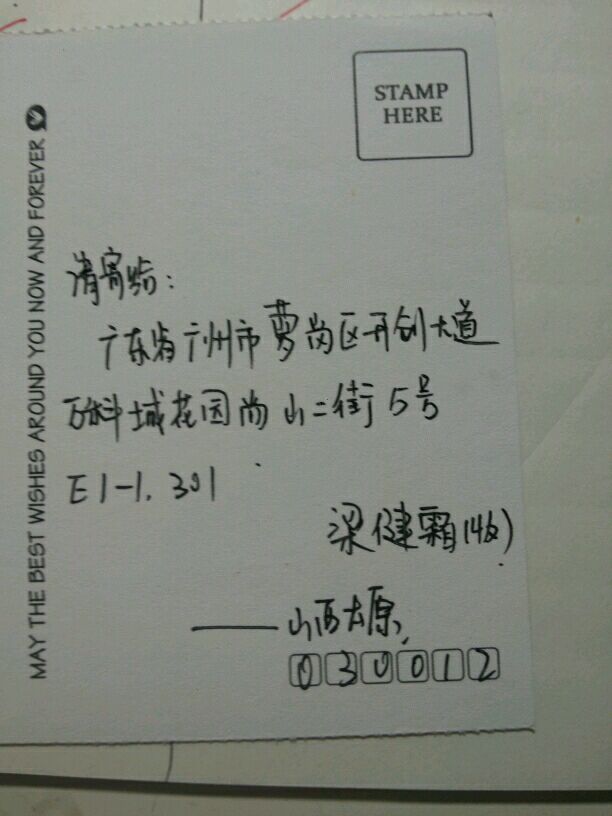 STAMP
HERE
MAY THE BEST WISHES AROUND YOU NOW AND FOREVER
请寄给:
广东省广州市萝岗区开创大道
万科城花园尚山二街5号
E1-1.301
梁健霜(收)
——山西太原
030012